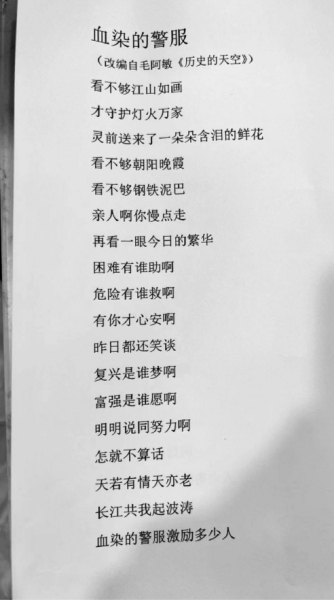 血染的警服
（改编自毛阿敏《历史的天空》）
看不够江山如画
才守护灯火万家
灵前送来了一朵朵含泪的鲜花
看不够朝阳晚霞
看不够钢铁泥巴
亲人啊你慢点走
再看一眼今日的繁华
困难有谁助啊
危险有谁救啊
有你才心安啊
昨日都还笑谈
复兴是谁梦啊
富强是谁愿啊
明明说同努力啊
怎就不算话
天若有情天亦老
长江共我起波涛
血染的警服激励多少人